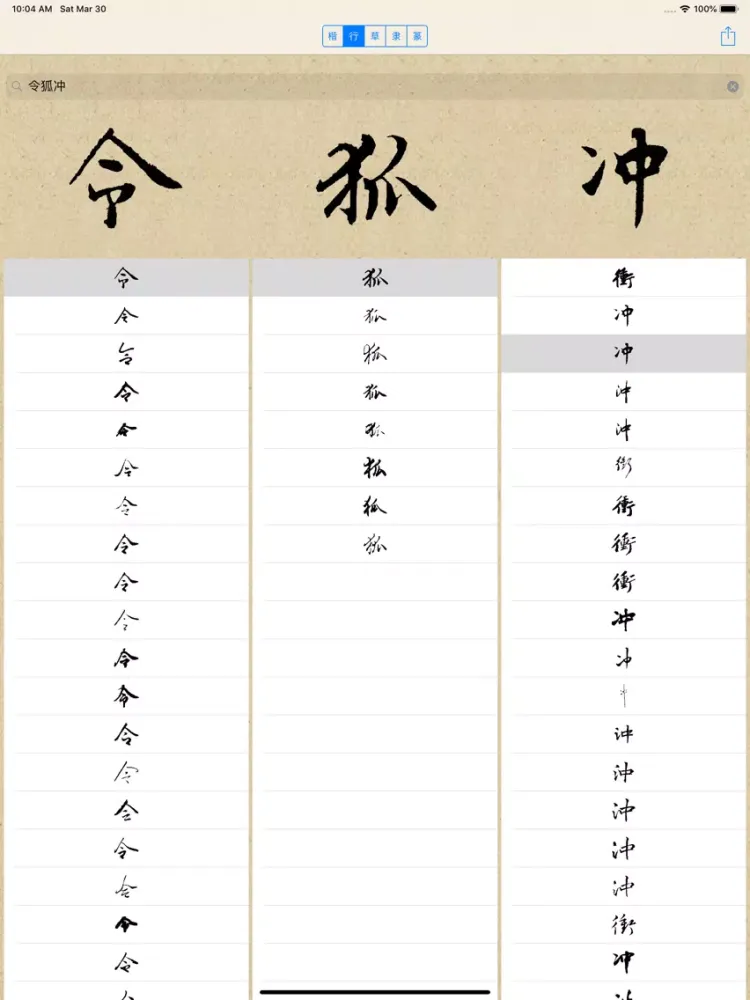 10:04 AM Sat Mar 30 100%
楷 行 草 隶 篆
令狐冲
令 狐 冲
令 狐 衝
令 狐 冲
令 狐 冲
令 狐 沖
令 狐 沖
令 狐 衝
令 狐 衝
令 狐 衝
令 衝
令 冲
令 冲
令 冲
令 沖
令 沖
令 沖
令 沖
令 沖
令 衝
令 冲